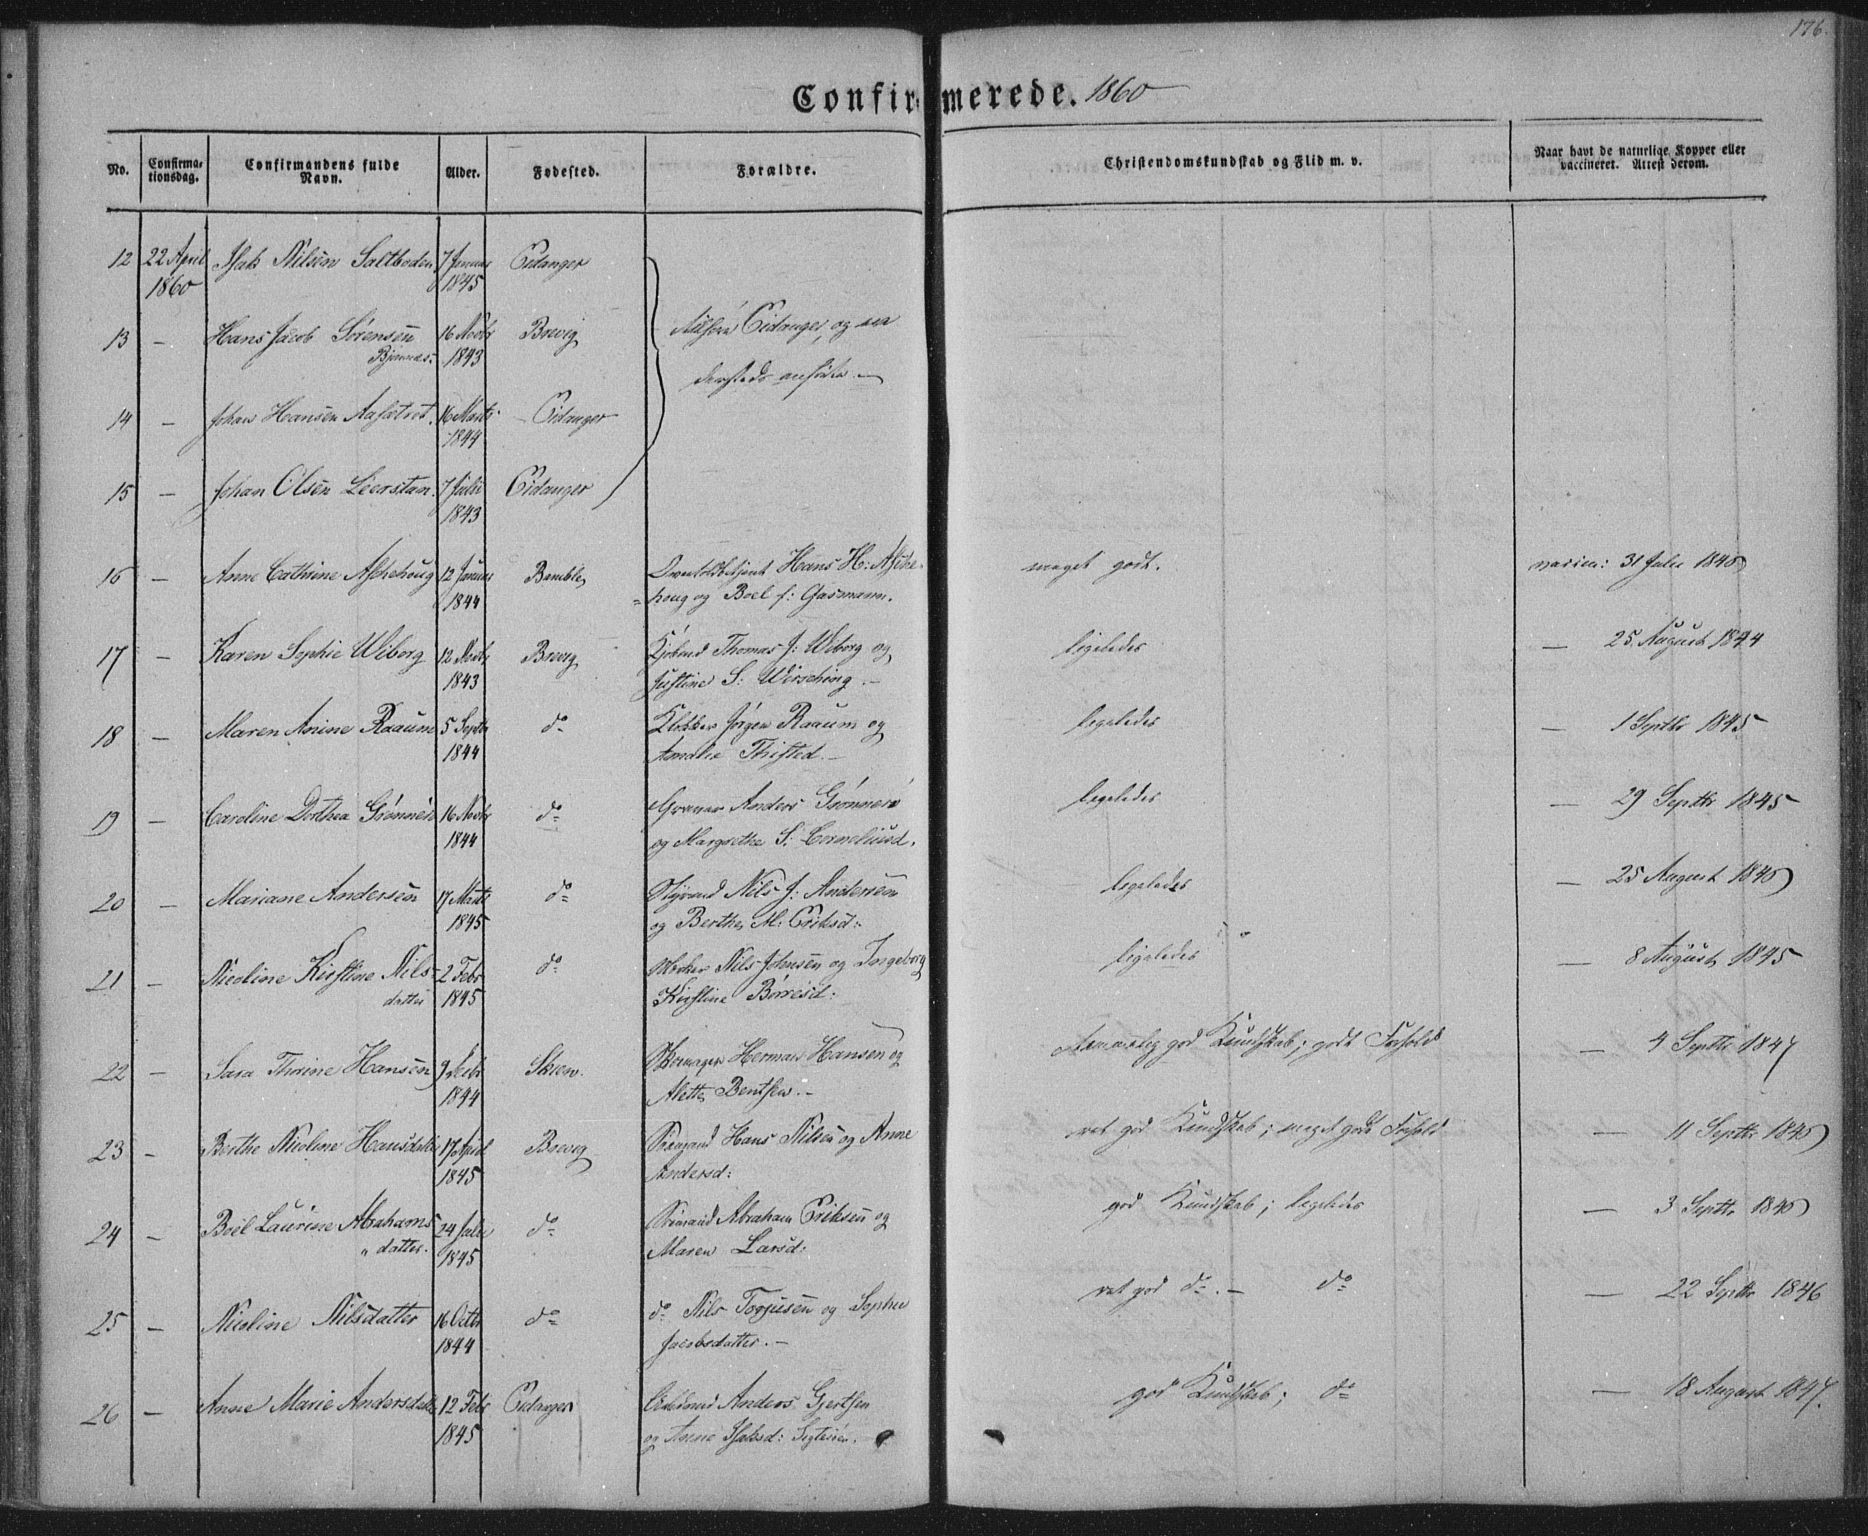 176.
Confirmerede. 1860
No.
Confirma-
tionsdag.
Confirmandens fulde
Navn.
Alder.
Fødested.
Forældre.
Christendomskundskab og Flid m. v.
Naar havt de naturlige Kopper eller
vaccineret. Attest derom.
12 22 April Isak Nilsen Saltboden 7 Januar Eidanger
1860 1845
13 — Hans Jacob Sørensen 16 Novbr Brevig Eidanger, og
Bjønnæs 1843
14 — Johan Hansen Aasætret 16 Marts Eidanger
1844
15 — Johan Olsen Leerstan 7 Juli Eidanger
1843
16 — Anne Cathrine Aschehoug 12 Januar Bamble Hans H: Asche- meget godt. vaccin: 31 Juli 1845
1844 houg og Boel f: Gasmann.
17 — Karen Sophie Wiborg 12 Novbr Brevig Kjøbmd Thomas J: Wiborg og ligeledes — 25 August 1844
1843 Justine S: Wirsching.—
18 — Maren Anine Raaum 5 Septbr do Klokker Jørgen Raaum og ligeledes — 1 Septbr 1845
1844 Amalia Thisted.—
19 — Caroline Dorthea Grønnerø 16 Novbr do Anders Grønnerø ligeledes — 29 Septbr 1845
1844 og Margrethe S: Corneliusd.
20 — Mariane Andersen 17 Marts do Nils J: Andersen ligeledes — 25 August 1845
1845 og Berthe M: Eriksd:
21 — Nicoline Kirstine Nils- 2 Febr do Nils Johnsen og Ingeborg ligeledes — 8 August 1845
datter 1845 Kirstine Børresd:
22 — Sara Thrine Hansen 9 Skien. Herman Hansen og temmelig god Kundskab; godt Forhold — 4 Septbr 1847
1844 Alette Bentsen.—
23 — Berthe Nicoline Hansdatter 17 April Brevig Sømand Hans Nilsen og Anne ret god Kundskab; meget godt Forhold — 11 Septbr 1845
1845 Andersd:
24 — Boel Laurine Abrahams 24 Juli do Sømand Abraham Eriksen og god Kundskab; ligeledes — 3 Septbr 1845
„ datter. 1845 Maren Larsd:
25 — Nicoline Nilsdatter 16 Octbr do do Nils Torjusen og Sophie ret god do.— do — 22 Septbr 1846
1844 Jacobsdatter.—
26 — Anne Marie Andersdatter 12 Febr Eidanger Anders Gjertsen god Kundskab; do — 18 August 1847.
1845 og Anne Isaksd: